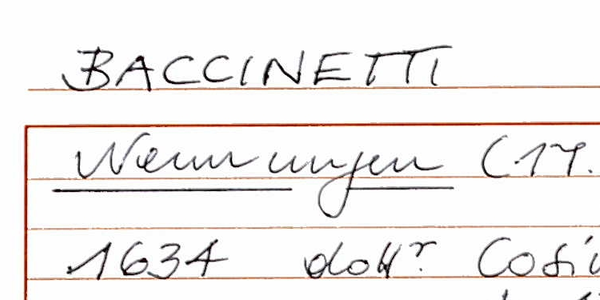 BACCINETTI
Nennungen (17.
1634 dottr Cosi